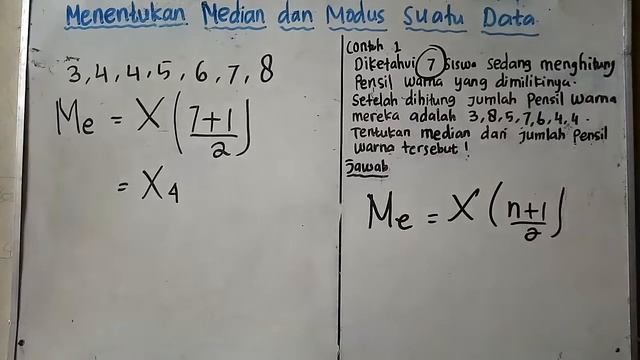 Menentukan Median dan Modus Suatu Data
3, 4, 4, 5, 6, 7, 8
Me = X (7+1/2)
= X4
Contoh 1
Diketahui 7 Siswa sedang menghitung
Pensil warna yang dimilikinya.
Setelah dihitung jumlah Pensil warna
mereka adalah 3,8,5,7,6,4,4.
Tentukan median dari jumlah pensil
warna tersebut!
Jawab
Me = X (n+1/2)